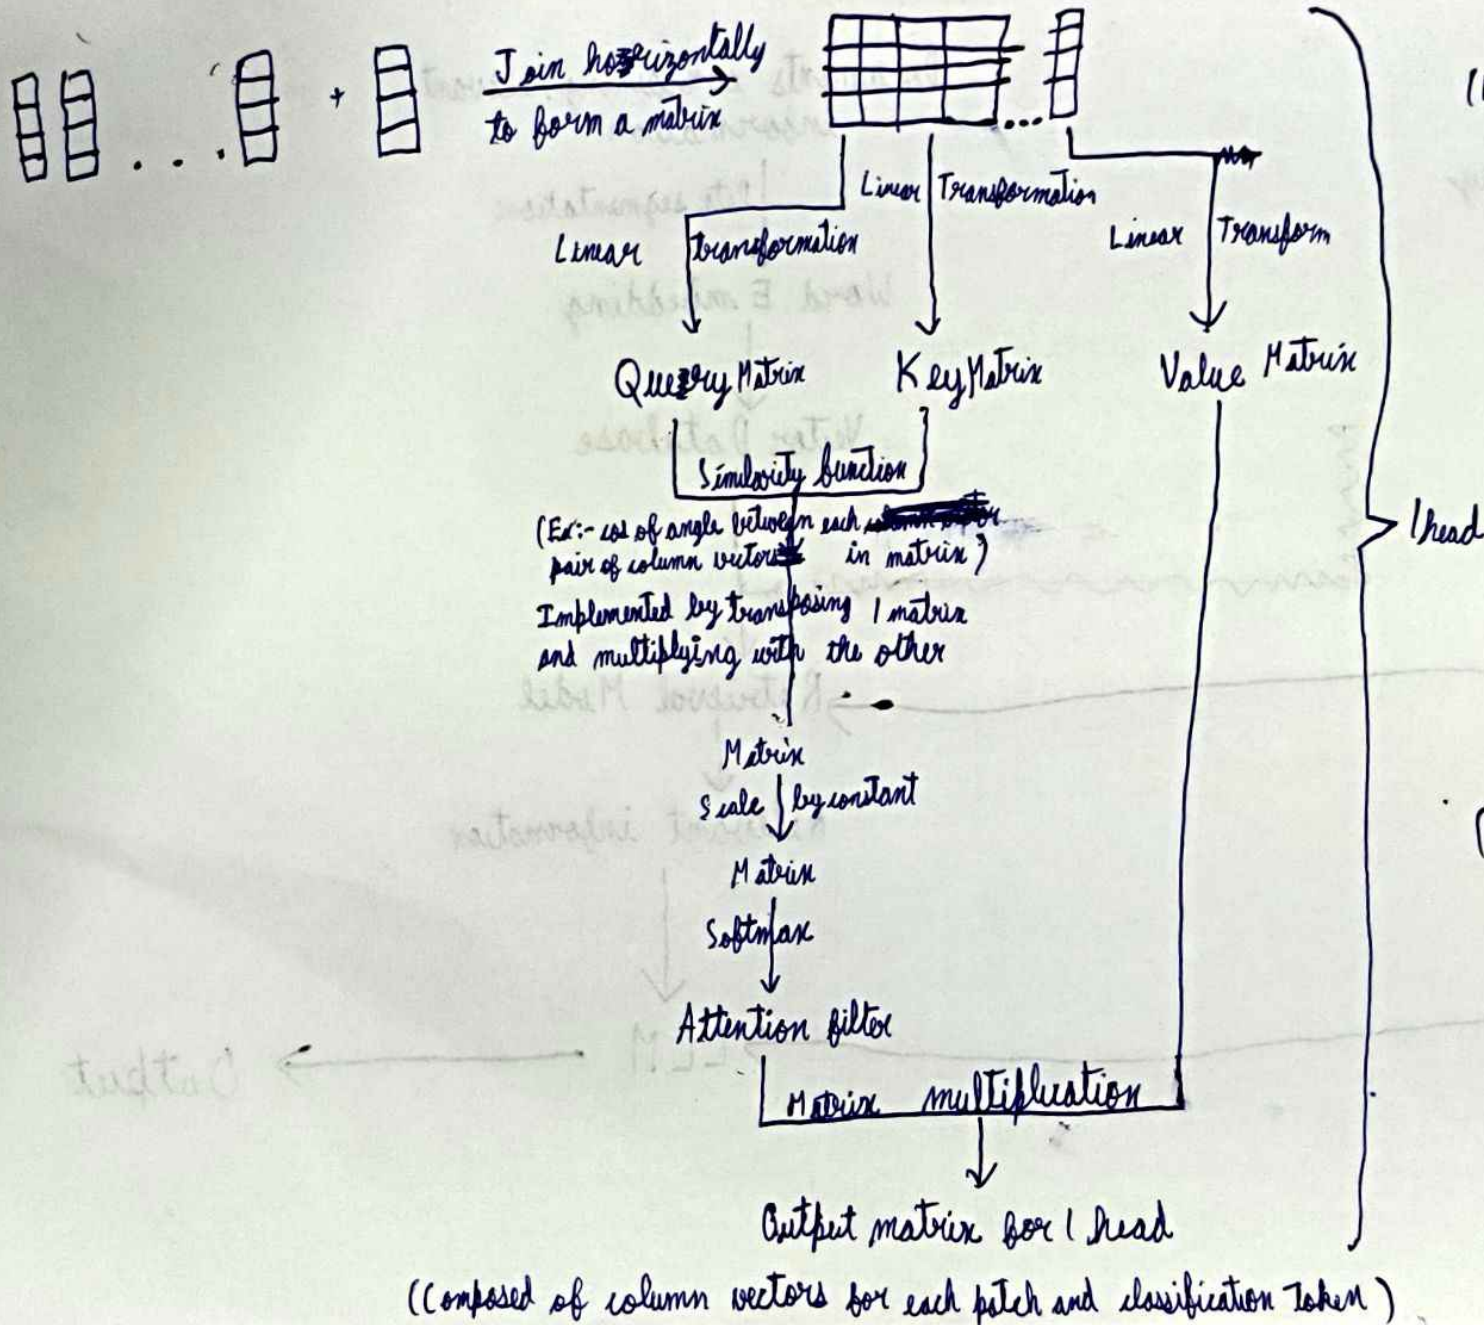 +
Join horizontally
to form a matrix
...
...
Linear Transformation
Linear transformation
Linear Transform
Query Matrix
Key Matrix
Value Matrix
Similarity function
(Ex:- cos of angle between each
pair of column vectors in matrix)
Implemented by transposing 1 matrix
and multiplying with the other
1 head
Matrix
Scale by constant
Matrix
Softmax
Attention filter
Matrix multiplication
Output matrix for 1 head
(Composed of column vectors for each patch and classification token)